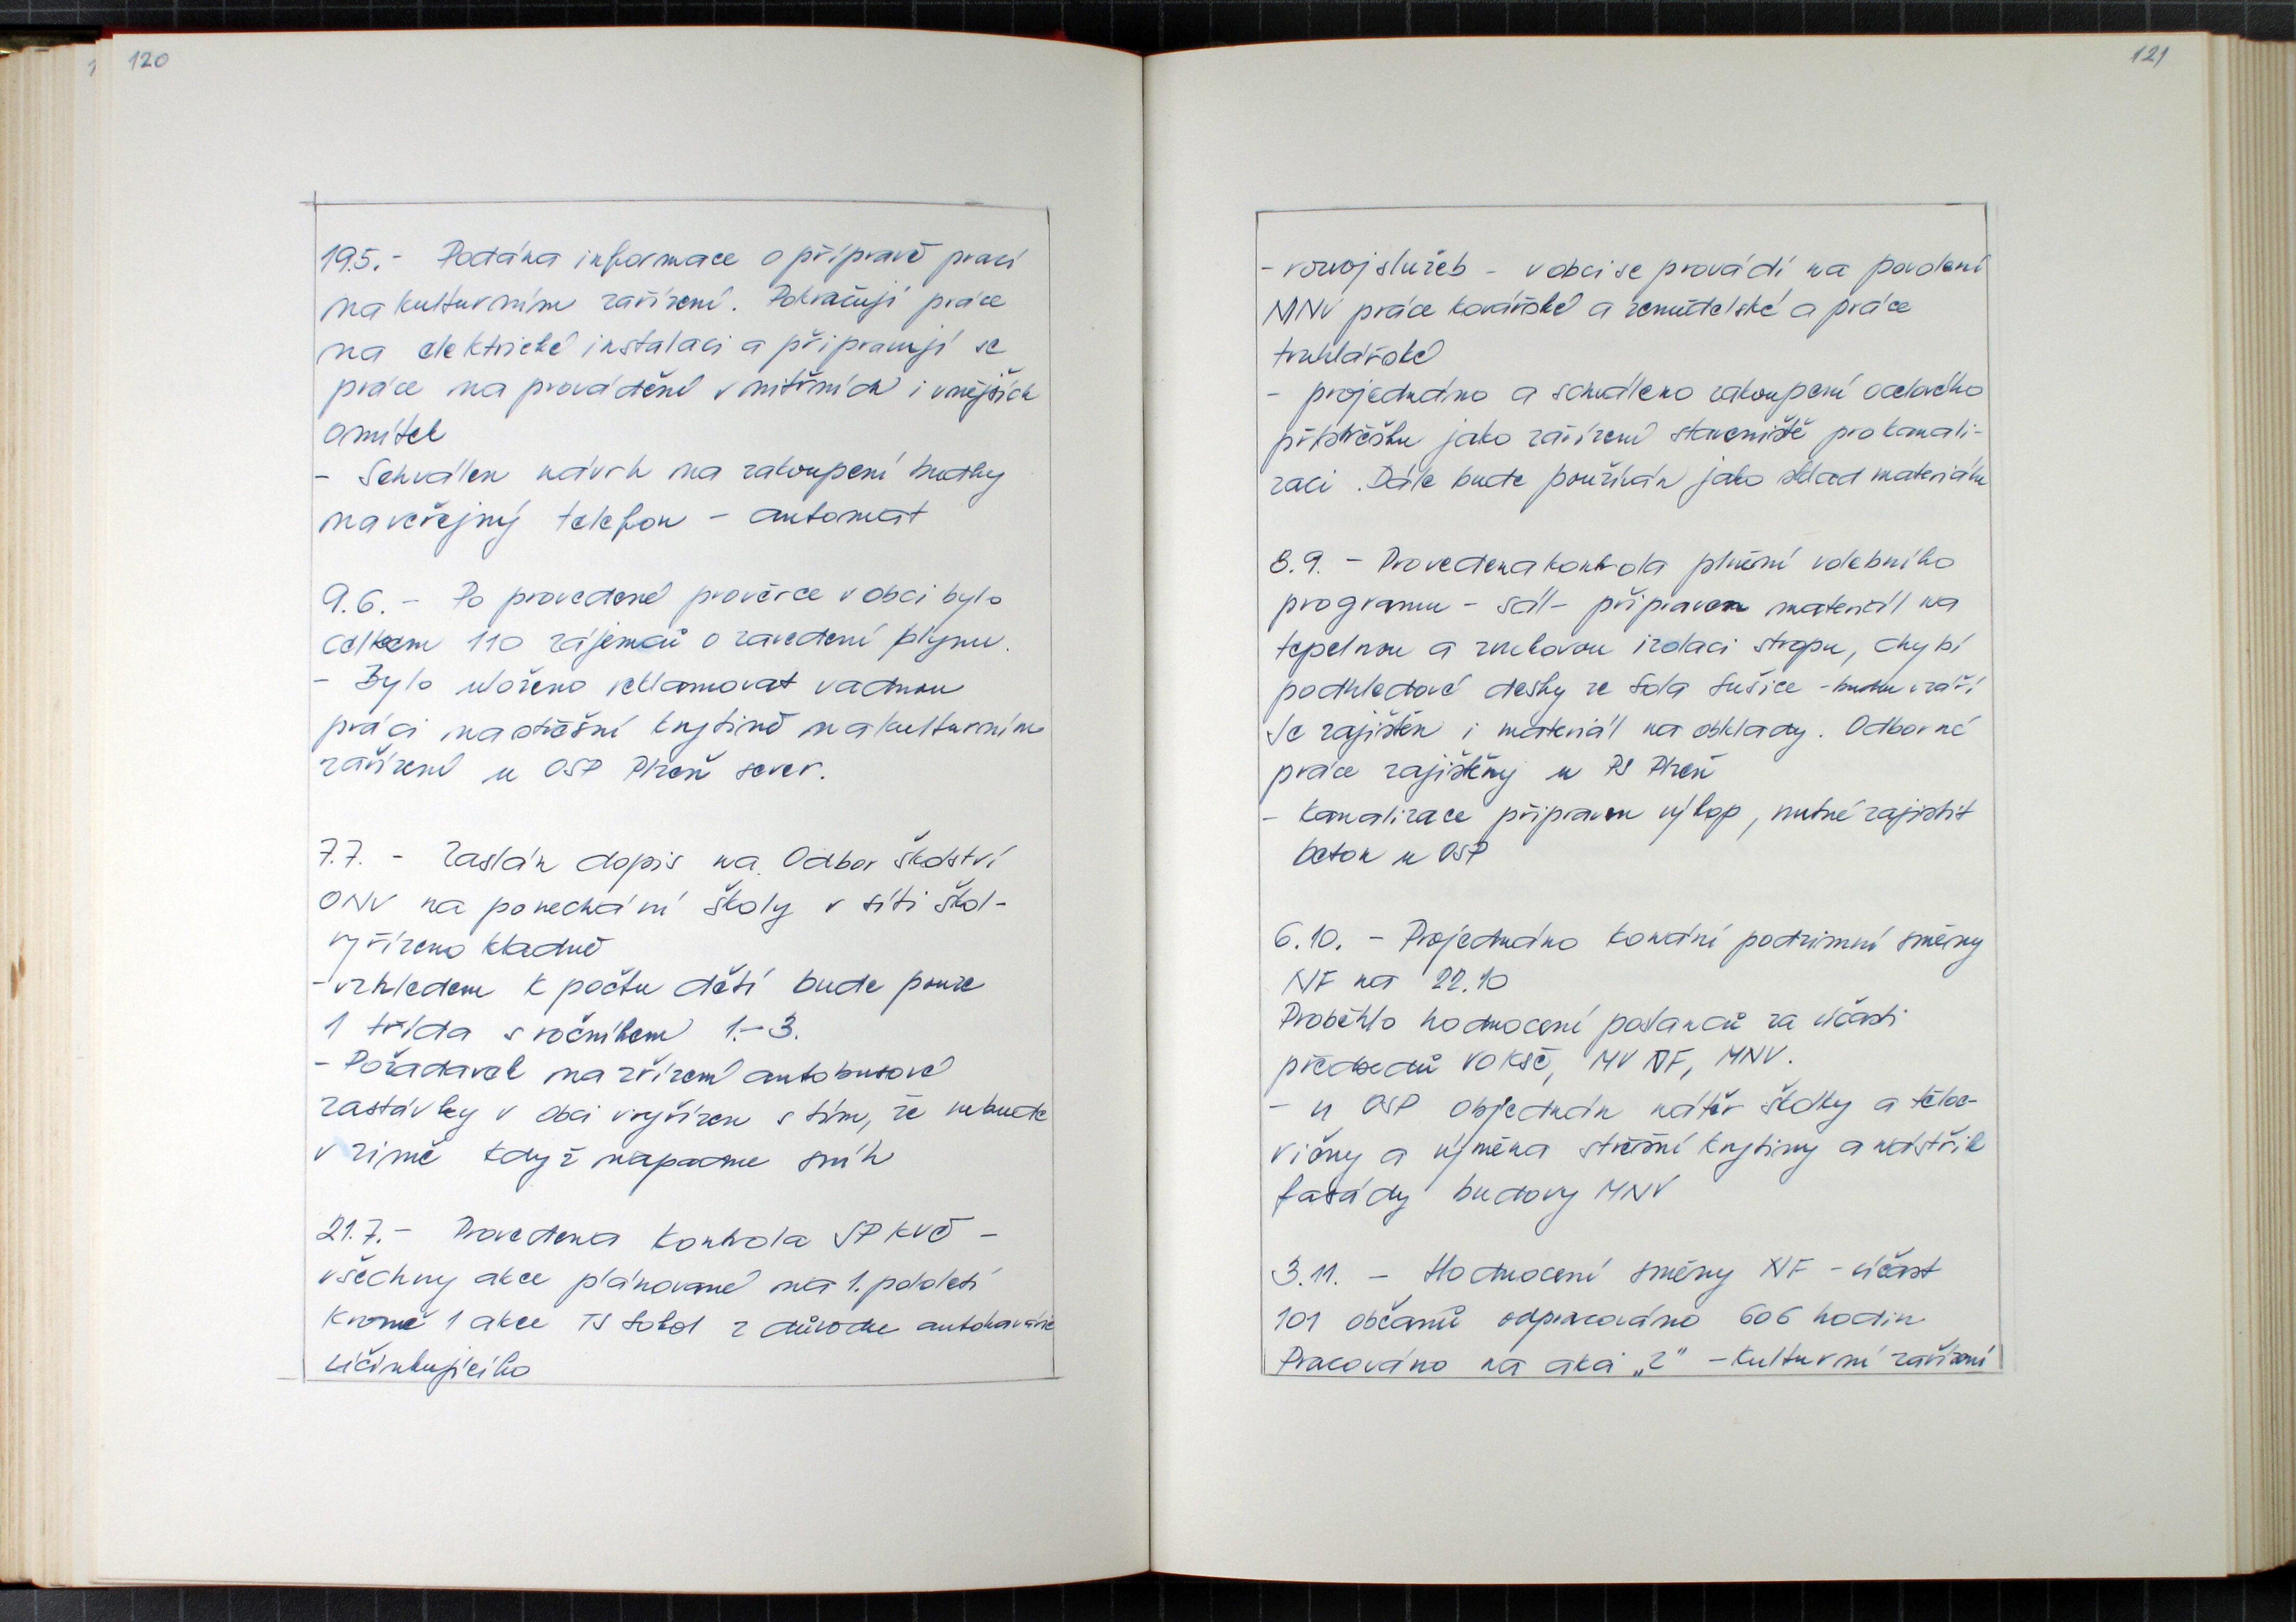 120
19.5. - Podána informace o přípravě prací
na kulturním zařízení. Pokračují práce
na elektrické instalaci a připravují se
práce na provádění vnitřních i vnějších
omítek
- Schválen návrh na zakoupení budky
na veřejný telefon - automat
9.6. - Po provedené prověrce v obci bylo
celkem 110 zájemců o zavedení plynu.
- Bylo uloženo reklamovat vadnou
práci na střešní krytině na kulturním
zařízení u OSP Plzeň sever.
7.7. - Zaslán dopis na Odbor školství
ONV na ponechání školy v síti škol -
vyřízeno kladně
- vzhledem k počtu dětí bude pouze
1 třída s ročníkem 1.-3.
- Požadavek na zřízení autobusové
zastávky v obci vyřízen s tím, že nebude
v zimě když napadne sníh
21.7. - Provedena kontrola JPKVČ -
všechny akce plánované na 1. pololetí
kromě 1 akce TJ Sokol z důvodu autohavárie
účinkujícího
121
- rozvoj služeb - v obci se provádí na povolení
MNV práce kovářské a zemědělské a práce
truhlářské
- projednáno a schváleno zakoupení ocelového
přístřešku jako zařízení staveniště pro kanali-
zaci. Dále bude používán jako sklad materiálu
8.9. - Provedena kontrola plnění volebního
programu - sál - připraven materiál na
tepelnou a zvukovou izolaci stropu, chybí
podhledové desky ze Sola Sušice - budou v září
Je zajištěn i materiál na obklady. Odborné
práce zajištěny u PS Plzeň
- Kanalizace připraven výkop, nutné zajistit
beton u OSP
6.10. - Projednáno konání podzimní směny
NF na 22.10
Proběhlo hodnocení poslanců za účasti
předsedů VO KSČ, MV NF, MNV.
- u OSP objednán nátěr školky a těloc-
vičny a výměna střešní krytiny a nástřik
fasády budovy MNV
3.11. - Hodnocení směny NF - účast
101 občanů odpracováno 606 hodin
Pracováno na akci „Z" - Kulturní zařízení